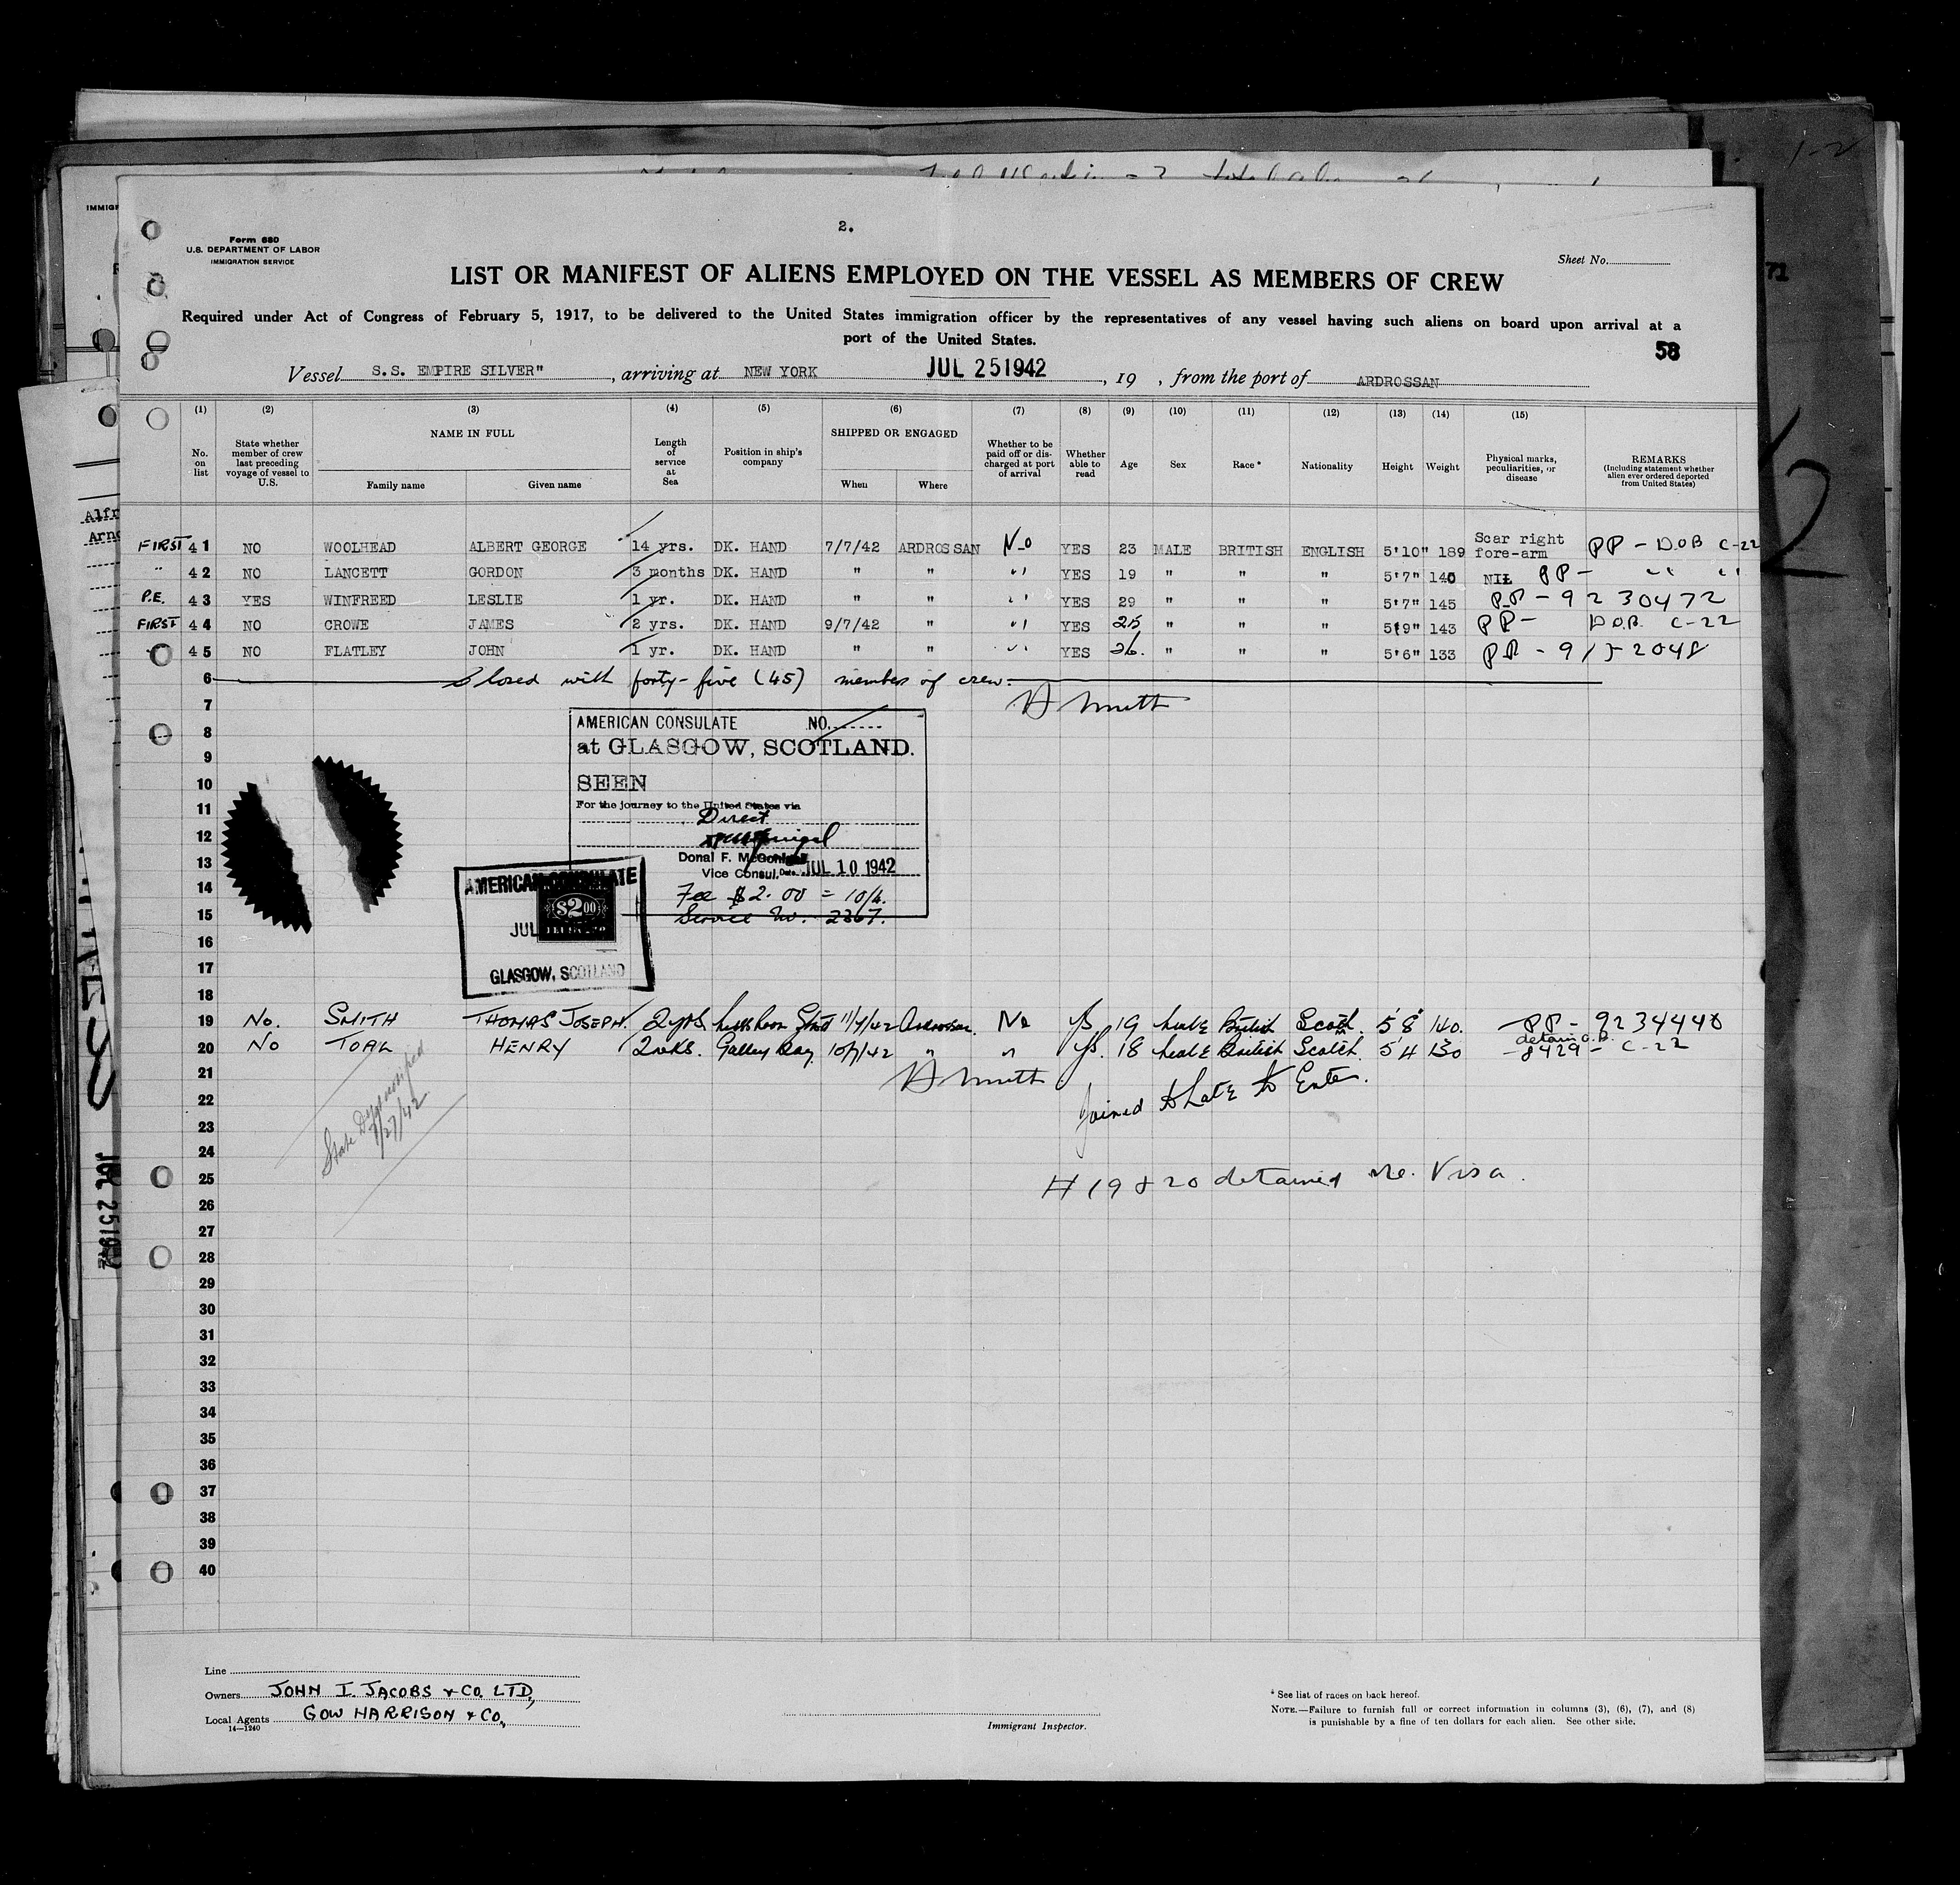 2.
Form 680
U.S. DEPARTMENT OF LABOR
IMMIGRATION SERVICE
Sheet No.
LIST OR MANIFEST OF ALIENS EMPLOYED ON THE VESSEL AS MEMBERS OF CREW
Required under Act of Congress of February 5, 1917, to be delivered to the United States immigration officer by the representatives of any vessel having such aliens on board upon arrival at a
port of the United States.
58
Vessel S.S. EMPIRE SILVER", arriving at NEW YORK JUL 25 1942, 19 , from the port of ARDROSSAN
(1) (2) (3) (4) (5) (6) (7) (8) (9) (10) (11) (12) (13) (14) (15)
No. on list
State whether member of crew last preceding voyage of vessel to U.S.
NAME IN FULL
Family name Given name
Length of service at Sea
Position in ship's company
SHIPPED OR ENGAGED
When Where
Whether to be paid off or discharged at port of arrival
Whether able to read
Age Sex Race * Nationality Height Weight
Physical marks, peculiarities, or disease
REMARKS
(Including statement whether alien ever ordered deported from United States)
FIRST 41 NO WOOLHEAD ALBERT GEORGE 14 yrs. DK. HAND 7/7/42 ARDROSSAN No YES 23 MALE BRITISH ENGLISH 5'10" 189 Scar right fore-arm PP - D.O.B C-22
" 42 NO LANCETT GORDON 3 months DK. HAND " " " YES 19 " " " 5'7" 140 NIL PP - " "
P.E. 43 YES WINFREED LESLIE 1 yr. DK. HAND " " " YES 29 " " " 5'7" 145 PP - 9230472
FIRST 44 NO CROWE JAMES 2 yrs. DK. HAND 9/7/42 " " YES 25 " " " 5'9" 143 PP - D.O.B. C-22
45 NO FLATLEY JOHN 1 yr. DK. HAND " " " YES 26. " " " 5'6" 133 PP - 9152048
6 Closed with forty-five (45) members of crew.
7
8
9
10
11
12
13
14
15
16
17
18
AMERICAN CONSULATE NO.
at GLASGOW, SCOTLAND.
SEEN
For the journey to the United States via
Direct
Donal F. McGonigal
Vice Consul. Date JUL 10 1942
Fee $2.00 = 10/4.
Service No. 2367.
AMERICAN CONSULATE
$2.00
JUL
GLASGOW, SCOTLAND
19 No. SMITH THOMAS JOSEPH. 2 yrs. 11/7/42 Ardrossan. No 19 Male British Scotch. 5'8" 140. PP - 9234448
20 No TOAL HENRY 2 wks. Galley Boy 10/7/42 " " 18 Male British Scotch. 5'4 130 detain 8429 - C-22
21
22 Joined to Late to Enter.
23
24
State Dept notified
7/27/42
25 # 19 & 20 detained re. Visa.
26
27
28
29
30
31
32
33
34
35
36
37
38
39
40
Line
Owners JOHN I. JACOBS & CO. LTD.,
Local Agents GOW HARRISON & CO.,
14-1240
Immigrant Inspector.
* See list of races on back hereof.
NOTE.—Failure to furnish full or correct information in columns (3), (6), (7), and (8)
is punishable by a fine of ten dollars for each alien. See other side.
JUL 25 1942